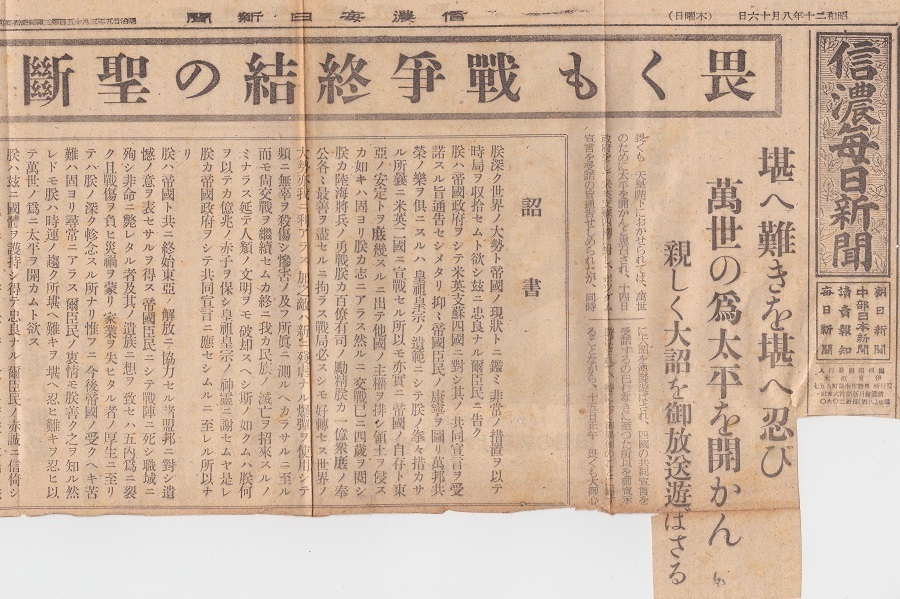 昭和二十年八月十六日
（木曜日）
信濃每日新聞
信濃每日新聞
朝日新聞
中部日本新聞
讀賣報知
每日新聞
畏くも戰爭終結の聖斷
堪へ難きを堪へ忍び
萬世の爲太平を開かん
親しく大詔を御放送遊ばさる
畏くも 天皇陛下におかせられては、萬世
のために太平を開かんと思召され、十四日
詔書
朕深ク世界ノ大勢ト帝國ノ現狀トニ鑑ミ非常ノ措置ヲ以テ
時局ヲ收拾セムト欲シ茲ニ忠良ナル爾臣民ニ告ク
朕ハ帝國政府ヲシテ米英支蘇四國ニ對シ其ノ共同宣言ヲ受
諾スル旨通告セシメタリ抑〻帝國臣民ノ康寧ヲ圖リ萬邦共
榮ノ樂ヲ偕ニスルハ皇祖皇宗ノ遺範ニシテ朕ノ拳々措カサ
ル所曩ニ米英二國ニ宣戰セル所以モ亦實ニ帝國ノ自存ト東
亞ノ安定トヲ庶幾スルニ出テ他國ノ主權ヲ排シ領土ヲ侵ス
カ如キハ固ヨリ朕カ志ニアラス然ルニ交戰已ニ四歲ヲ閱シ
朕カ陸海將兵ノ勇戰朕カ百僚有司ノ勵精朕カ一億衆庶ノ奉
公各〻最善ヲ盡セルニ拘ラス戰局必スシモ好轉セス世界ノ
大勢亦我ニ利アラス加之敵ハ新ニ殘虐ナル爆彈ヲ使用シテ
頻ニ無辜ヲ殺傷シ慘害ノ及フ所眞ニ測ルヘカラサルニ至ル
而モ尙交戰ヲ繼續セムカ終ニ我カ民族ノ滅亡ヲ招來スルノ
ミナラス延テ人類ノ文明ヲモ破却スヘシ斯ノ如クムハ朕何
ヲ以テカ億兆ノ赤子ヲ保シ皇祖皇宗ノ神靈ニ謝セムヤ是レ
朕カ帝國政府ヲシテ共同宣言ニ應セシムルニ至レル所以ナ
リ
朕ハ帝國ト共ニ終始東亞ノ解放ニ協力セル諸盟邦ニ對シ遺
憾ノ意ヲ表セサルヲ得ス帝國臣民ニシテ戰陣ニ死シ職域ニ
殉シ非命ニ斃レタル者及其ノ遺族ニ想ヲ致セハ五內爲ニ裂
ク且戰傷ヲ負ヒ災禍ヲ蒙リ家業ヲ失ヒタル者ノ厚生ニ至リ
テハ朕ノ深ク軫念スル所ナリ惟フニ今後帝國ノ受クヘキ苦
難ハ固ヨリ尋常ニアラス爾臣民ノ衷情モ朕善ク之ヲ知ル然
レトモ朕ハ時運ノ趨ク所堪ヘ難キヲ堪ヘ忍ヒ難キヲ忍ヒ以
テ萬世ノ爲ニ太平ヲ開カムト欲ス
朕ハ茲ニ國體ヲ護持シ得テ忠良ナル爾臣民ノ赤誠ニ信倚シ